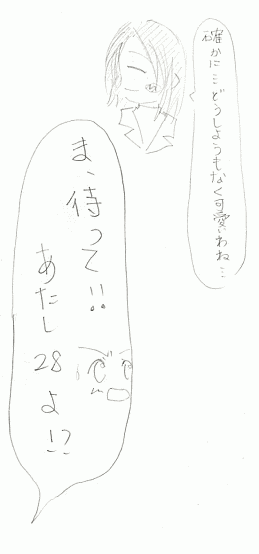 確かに…どうしようもなく可愛いわね…
ま、待って!!
あたし28よ!?